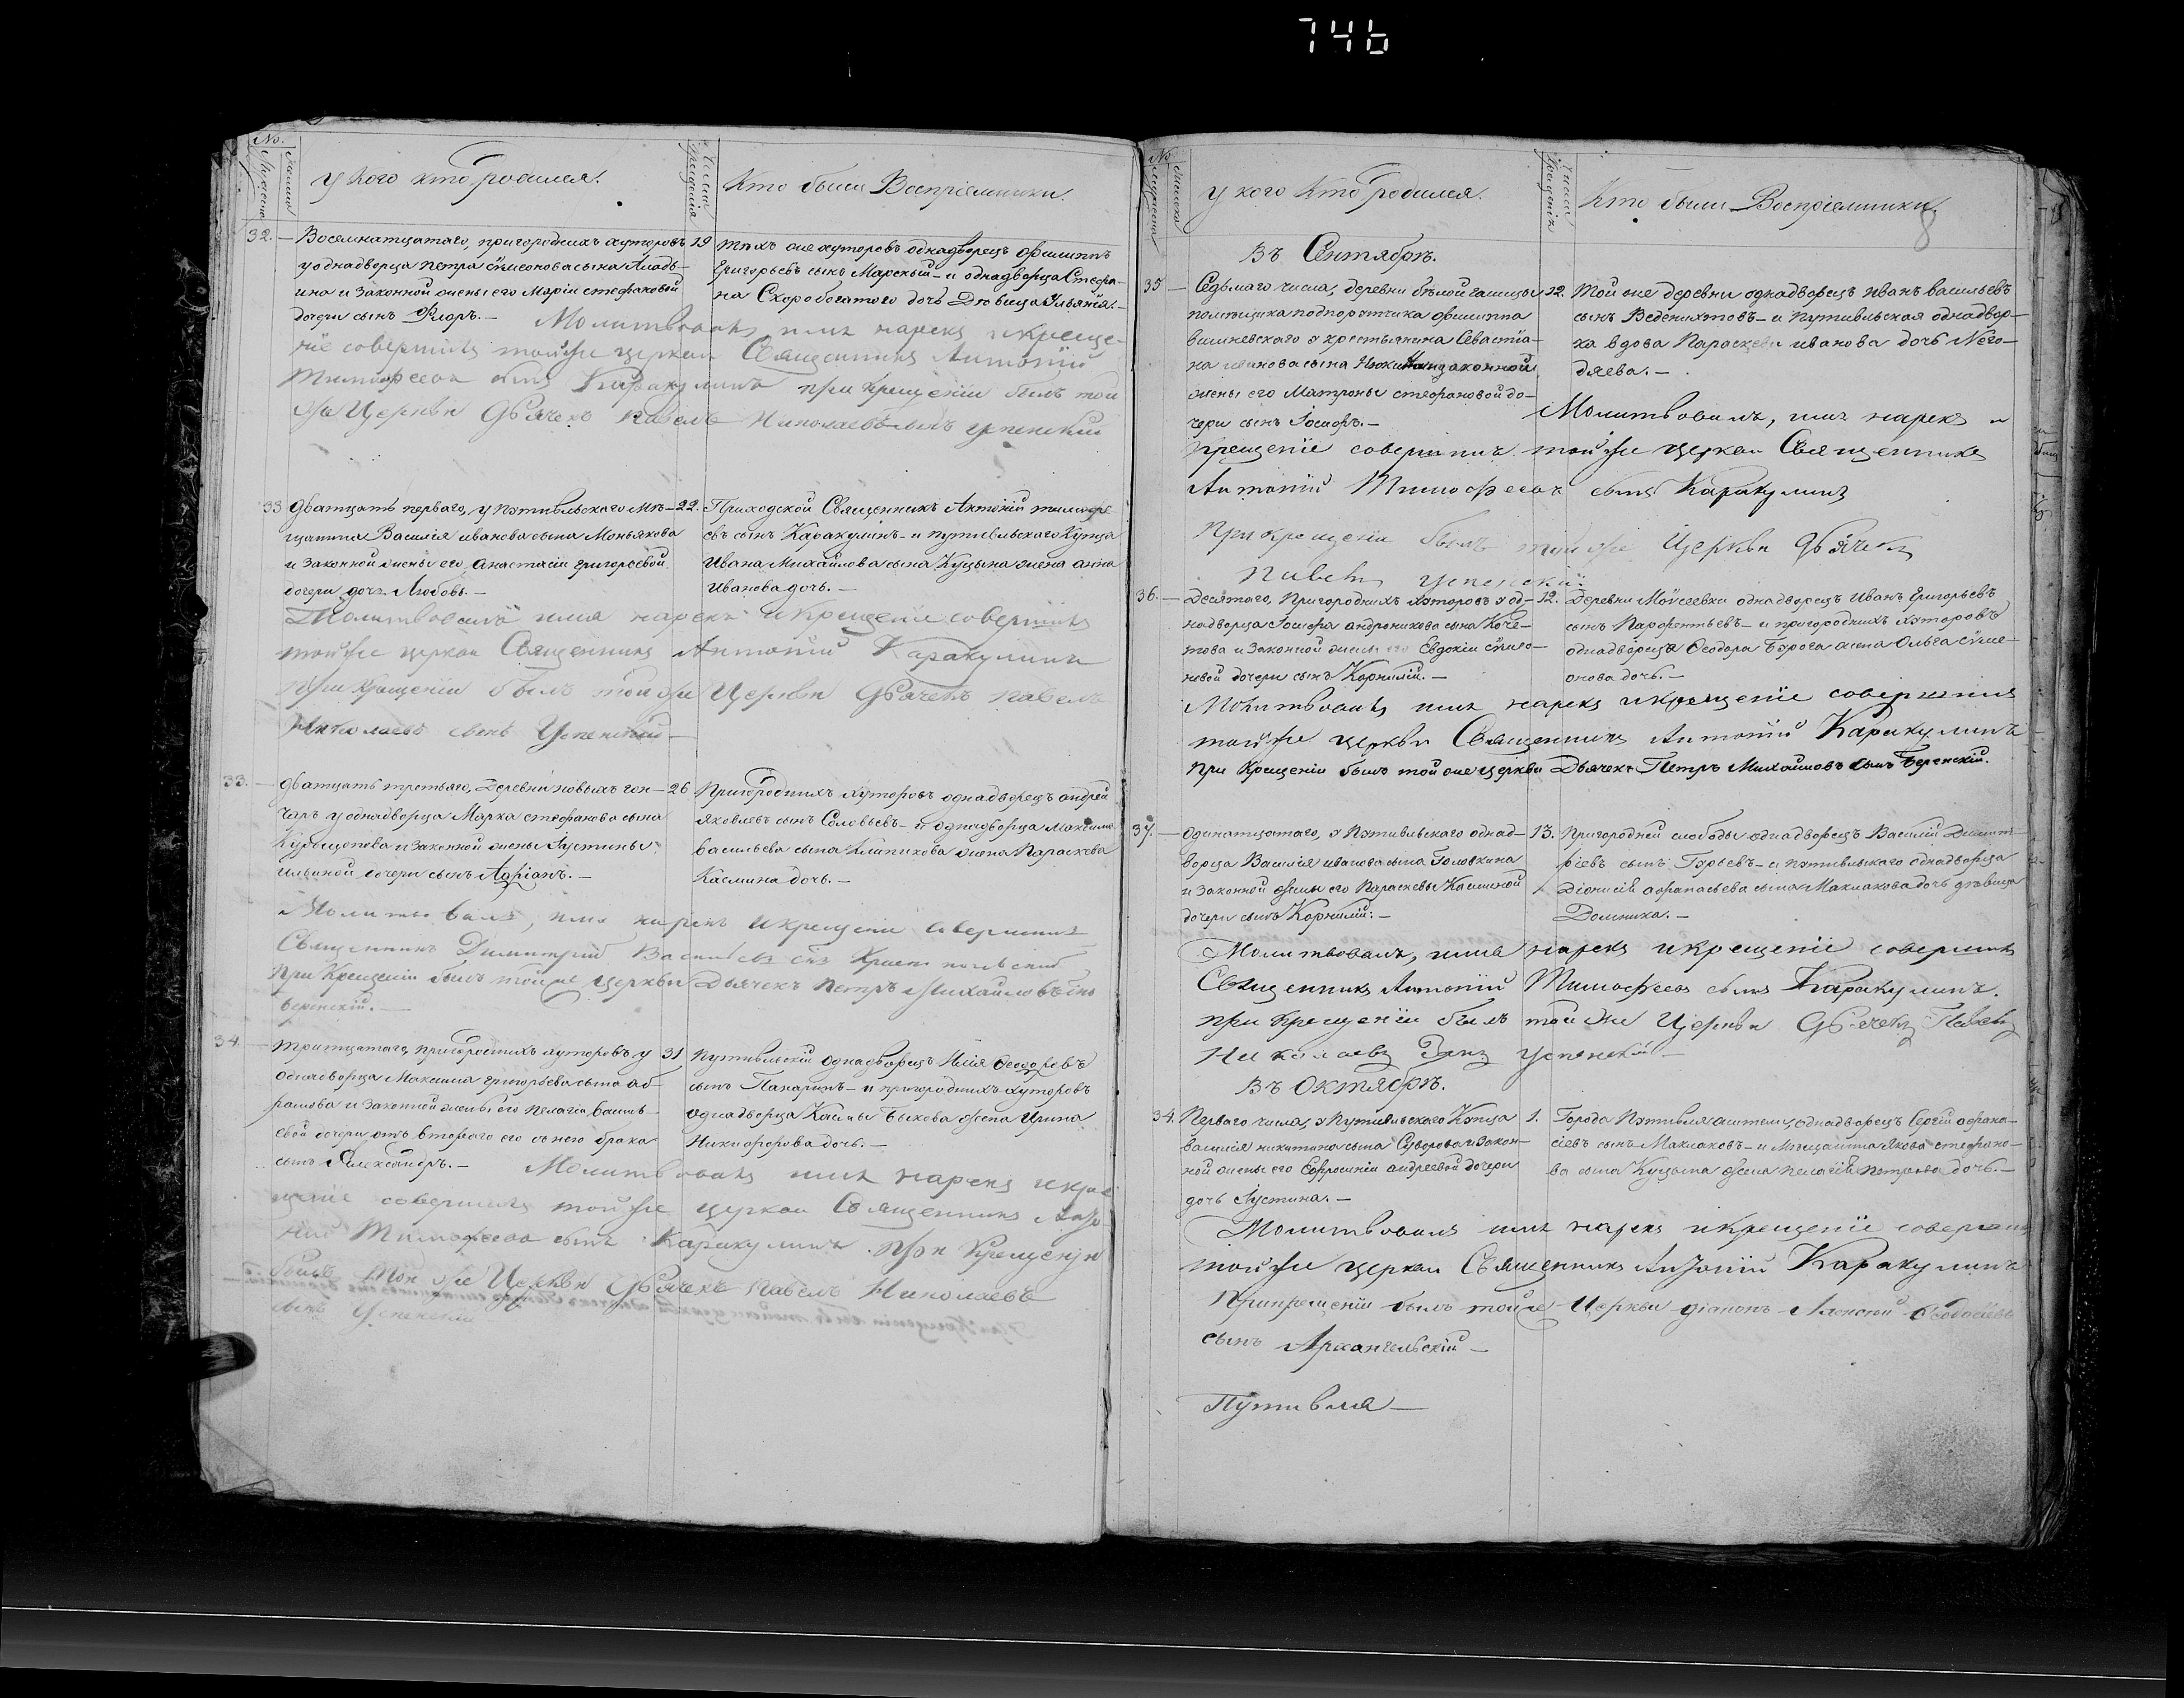 746
No.
Мужеска
Женска
У кого кто родился.
Число крещенія
Кто были Воспріемники.
32. Восемнатцатаго, пригородныхъ хуторовъ 19
у однадворца Петра Сѵмеонова сына
и законной жены его Маріи Стефановой
дочери сынъ Флоръ. —
тѣхъ же хуторовъ однадворецъ Филиппъ
Григорьевъ сынъ Марской — и однадворца Стефа-
на Скоробогатого дочь Дѣвица Ульянія. —
Молитвовалъ, имя нарекъ и креще-
ніе совершилъ той же церкви Священникъ Антоній
Тимофеевъ сынъ Каракулинъ при крещеніи былъ той
же Церкви Дьячекъ Павелъ Николаевъ сынъ Успенскій
33 Дватцать перваго, у Путивльскаго мѣ- 22.
щанина Василія Иванова сына Монькова
и законной жены его Анастасіи Григорьевой
дочери дочь Любовь. —
Приходской Священникъ Антоній Тимофе
евъ сынъ Каракулинъ — и путивльскаго Купца
Ивана Михайлова сына Куцына жена Анна
Иванова дочь. —
Молитвовалъ имя нарекъ и крещеніе совершилъ
той же церкви Священникъ Антоній Каракулинъ
при крещеніи былъ той же Церкви Дьячекъ Павелъ
Николаевъ сынъ Успенскій —
33. Дватцать третьяго, Деревни новыхъ Гон- 26
чаръ у однадворца Марка Стефанова сына
и законной жены Іустины
Ильиной дочери сынъ Адріанъ. —
Пригородныхъ хуторовъ однадворецъ Андрей
Яковлевъ сынъ Соловьевъ — и однадворца Максима
Васильева сына жена Параскева
Касмина дочь. —
Молитвовалъ, имя нарекъ и крещеніе совершилъ
Священникъ Димитрій Васильевъ сынъ
При Крещеніи былъ той же церкви Дьячекъ Петръ Михайловъ сынъ
Беренскій. —
34. Тритцатаго, пригородныхъ хуторовъ у 31
однадворца Максима Григорьева сына Аб-
рамова и законной жены его Пелагіи Василь-
евой дочери отъ втораго его съ нею брака
сынъ Александръ. —
Путивльскій однадворецъ Илія Ѳеодоровъ
сынъ Панаринъ — и пригородныхъ хуторовъ
однадворца Касмы Быкова жена Ирина
Никифорова дочь. —
Молитвовалъ имя нарекъ и кре
щеніе совершилъ той же церкви Священникъ Анто
ній Тимофеевъ сынъ Каракулинъ. при крещеніи
былъ той же Церкви Дьячекъ Павелъ Николаевъ
сынъ Успенскій
No
Мужеска
Женска
У кого кто родился.
Число крещенія
Кто были Воспріемники.
8
Въ Сентябрѣ.
35 — Седьмаго числа, деревни бѣлой галицы 12.
помѣщика подпорутчика Филиппа
Вишневскаго у крестьянина Севастіа-
на Иванова сына и законной
жены его Матроны Стефановой до-
чери сынъ Іосифъ. —
Той же деревни однадворецъ Иванъ Васильевъ
сынъ Веденихтовъ — и путивльская однадвор-
ка вдова Параскева Иванова дочь Него-
дяева. —
Молитвовалъ, имя нарекъ и
крещеніе совершилъ той же церкви Священникъ
Антоній Тимофеевъ сынъ Каракулинъ
При крещеніи былъ той же Церкви Дьячекъ
Павелъ Успенскій
36. — Десятаго, Пригородныхъ хуторовъ у од- 12.
надворца Іосифа Андроникова сына Коче-
това и законной жены его Евдокіи Сѵмео-
новой дочери сынъ Корнилій. —
Деревни Мойсеевки однадворецъ Иванъ Григорьевъ
сынъ Парфентьевъ — и пригородныхъ хуторовъ
однадворца Ѳеодора жена Ольга Сѵме-
онова дочь. —
Молитвовалъ имя нарекъ и крещеніе совершилъ
той же церкви Священникъ Антоній Каракулинъ
При Крещеніи былъ той же церкви Дьячекъ Петръ Михайловъ сынъ Беренскій.
37. — Одинатцатаго, у Путивльскаго однад- 13.
ворца Василія Иванова сына Головкина
и законной жены его Параскевы Касминой
дочери сынъ Корнилій. —
Пригородней слободы однадворецъ Василій Димит-
ріевъ сынъ Гурьевъ — и путивльскаго однадворца
Діонисія Афанасьева сына Маклакова дочь дѣвица
Домника. —
Молитвовалъ, имя нарекъ и крещеніе совершилъ
Священникъ Антоній Тимофеевъ сынъ Каракулинъ.
при крещеніи былъ той же Церкви Дьячекъ Павелъ
Николаевъ сынъ Успенскій —
Въ Октябрѣ.
34. Перваго числа, у Путивльскаго Купца 1.
Василія Никитина сына Суворова и закон-
ной жены его Евфросиніи Андреевой дочери
дочь Іустина. —
Города Путивля житель, однадворецъ Сергій Афана-
сіевъ сынъ Маклаковъ — и мѣщанина Якова Стефано-
ва сына Куцына жена Пелагія Петрова дочь. —
Молитвовалъ имя нарекъ и крещеніе совершилъ
той же церкви Священникъ Антоній Каракулинъ
При крещеніи былъ той же Церкви діаконъ Алексѣй Ѳеодосіевъ
сынъ Архангельскій —
Путивля —